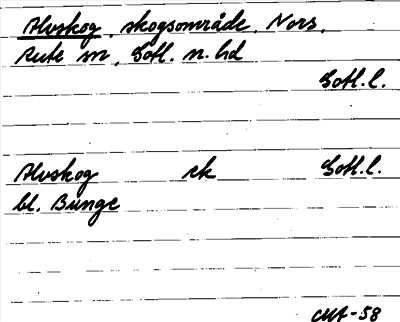 Alvskog, skogsområde, Nors,
Rute sn, Gotl. n. hd
Gotl. l.
Alvskog ek Gotl. l.
bl. Bunge
CMA-58